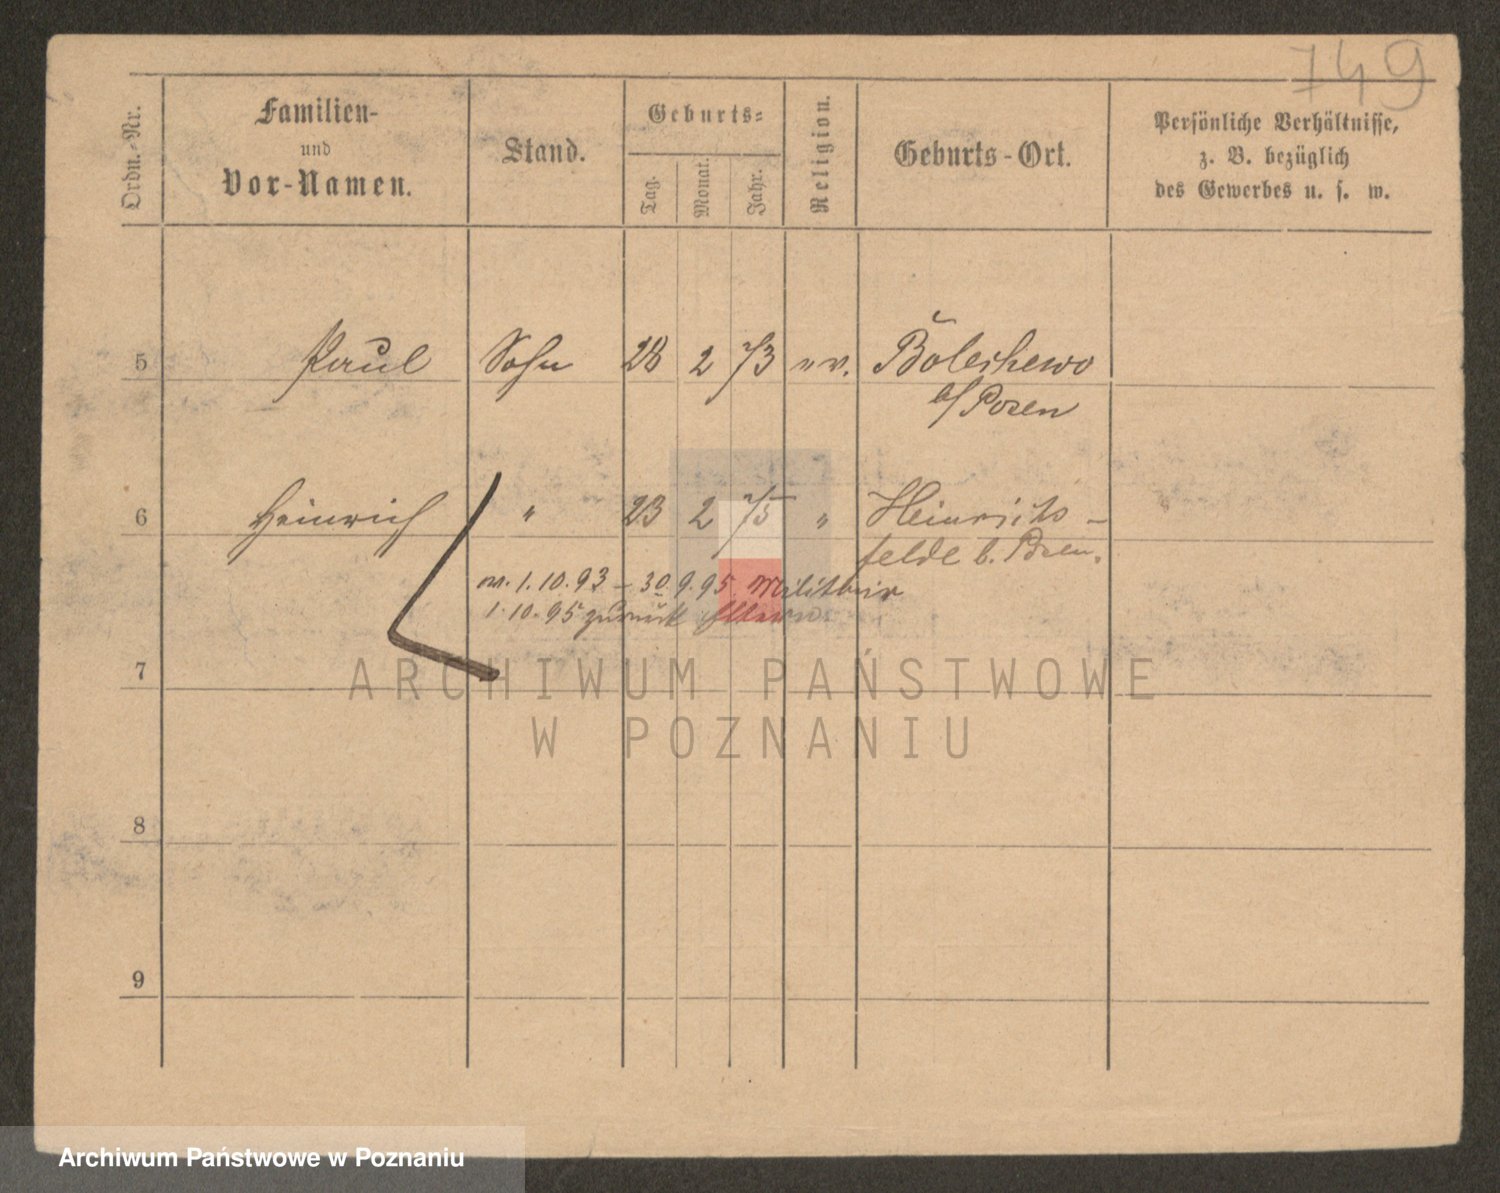 749
Ordn.-Nr.
Familien-
und
Vor-Namen.
Stand.
Geburts-
Tag.
Monat.
Jahr.
Religion.
Geburts-Ort.
Persönliche Verhältnisse,
z. B. bezüglich
des Gewerbes u. s. w.
5 Paul Sohn 28 2 73 ev.
b/Posen
6 Heinrich " 23 2 75 " Heinrichs-
felde b. Posen.
1.10.93 – 30.9.95 Militair
1.10.95 zurück
7
8
9
ARCHIWUM PAŃSTWOWE
W POZNANIU
Archiwum Państwowe w Poznaniu